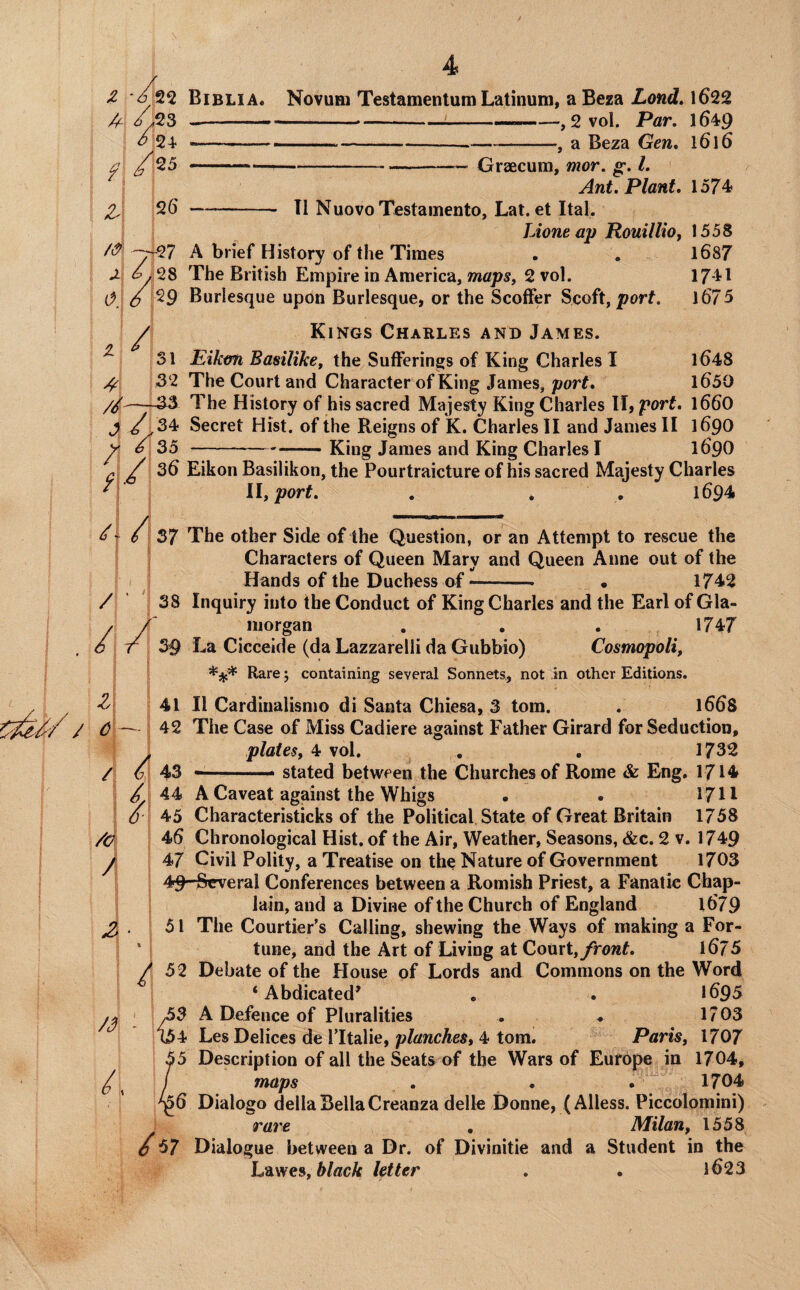 4
2 - 6 22 BIBLIA. Novum Testamentum Latinum, a Beza Lond. 1622
4 6 23 ————————, 2 vol. Par. 1649
6 24 ————————, a Beza Gen. 1616
25 ———————— Græcum, mor. g. l.
Ant. Plant. 1574
2 26 ———— Il Nuovo Testamento, Lat. et Ital.
Lione ap Rouillio, 1558
27 A brief History of the Times . . 1687
2 6 28 The British Empire in America, maps, 2 vol. 1741
6 29 Burlesque upon Burlesque, or the Scoffer Scoft, port. 1675
KINGS CHARLES AND JAMES.
2 31 Eikon Basilike, the Sufferings of King Charles I 1648
4 32 The Court and Character of King James, port. 1650
33 The History of his sacred Majesty King Charles II, port. 1660
3 34 Secret Hist. of the Reigns of K. Charles II and James II 1690
6 35 ———— King James and King Charles I 1690
36 Eikon Basilikon, the Pourtraicture of his sacred Majesty Charles
II, port. . . . 1694
37 The other Side of the Question, or an Attempt to rescue the
Characters of Queen Mary and Queen Anne out of the
Hands of the Duchess of ——— . 1742
38 Inquiry into the Conduct of King Charles and the Earl of Gla-
morgan . . . 1747
39 La Cicceide (da Lazzarelli da Gubbio) Cosmopoli,
*** Rare; containing several Sonnets, not in other Editions.
2 41 Il Cardinalismo di Santa Chiesa, 3 tom. . 1668
42 The Case of Miss Cadiere against Father Girard for Seduction,
plates, 4 vol. . . 1732
6 43 ———— stated between the Churches of Rome & Eng. 1714
6 44 A Caveat against the Whigs . . 1711
6 45 Characteristicks of the Political State of Great Britain 1758
10 46 Chronological Hist. of the Air, Weather, Seasons, &c. 2 v. 1749
47 Civil Polity, a Treatise on the Nature of Government 1703
49 Several Conferences between a Romish Priest, a Fanatic Chap-
lain, and a Divine of the Church of England 1679
2 . 51 The Courtier's Calling, shewing the Ways of making a For-
tune, and the Art of Living at Court, front. 1675
52 Debate of the House of Lords and Commons on the Word
‘ Abdicated’ . . 1695
13 - 53 A Defence of Pluralities . . 1703
54 Les Delices de l'Italie, planches, 4 tom. Paris, 1707
55 Description of all the Seats of the Wars of Europe in 1704,
maps . . . 1704
56 Dialogo della Bella Creanza delle Donne, (Alless. Piccolomini)
rare . Milan, 1558
6 57 Dialogue between a Dr. of Divinitie and a Student in the
Lawes, black letter . . 1623